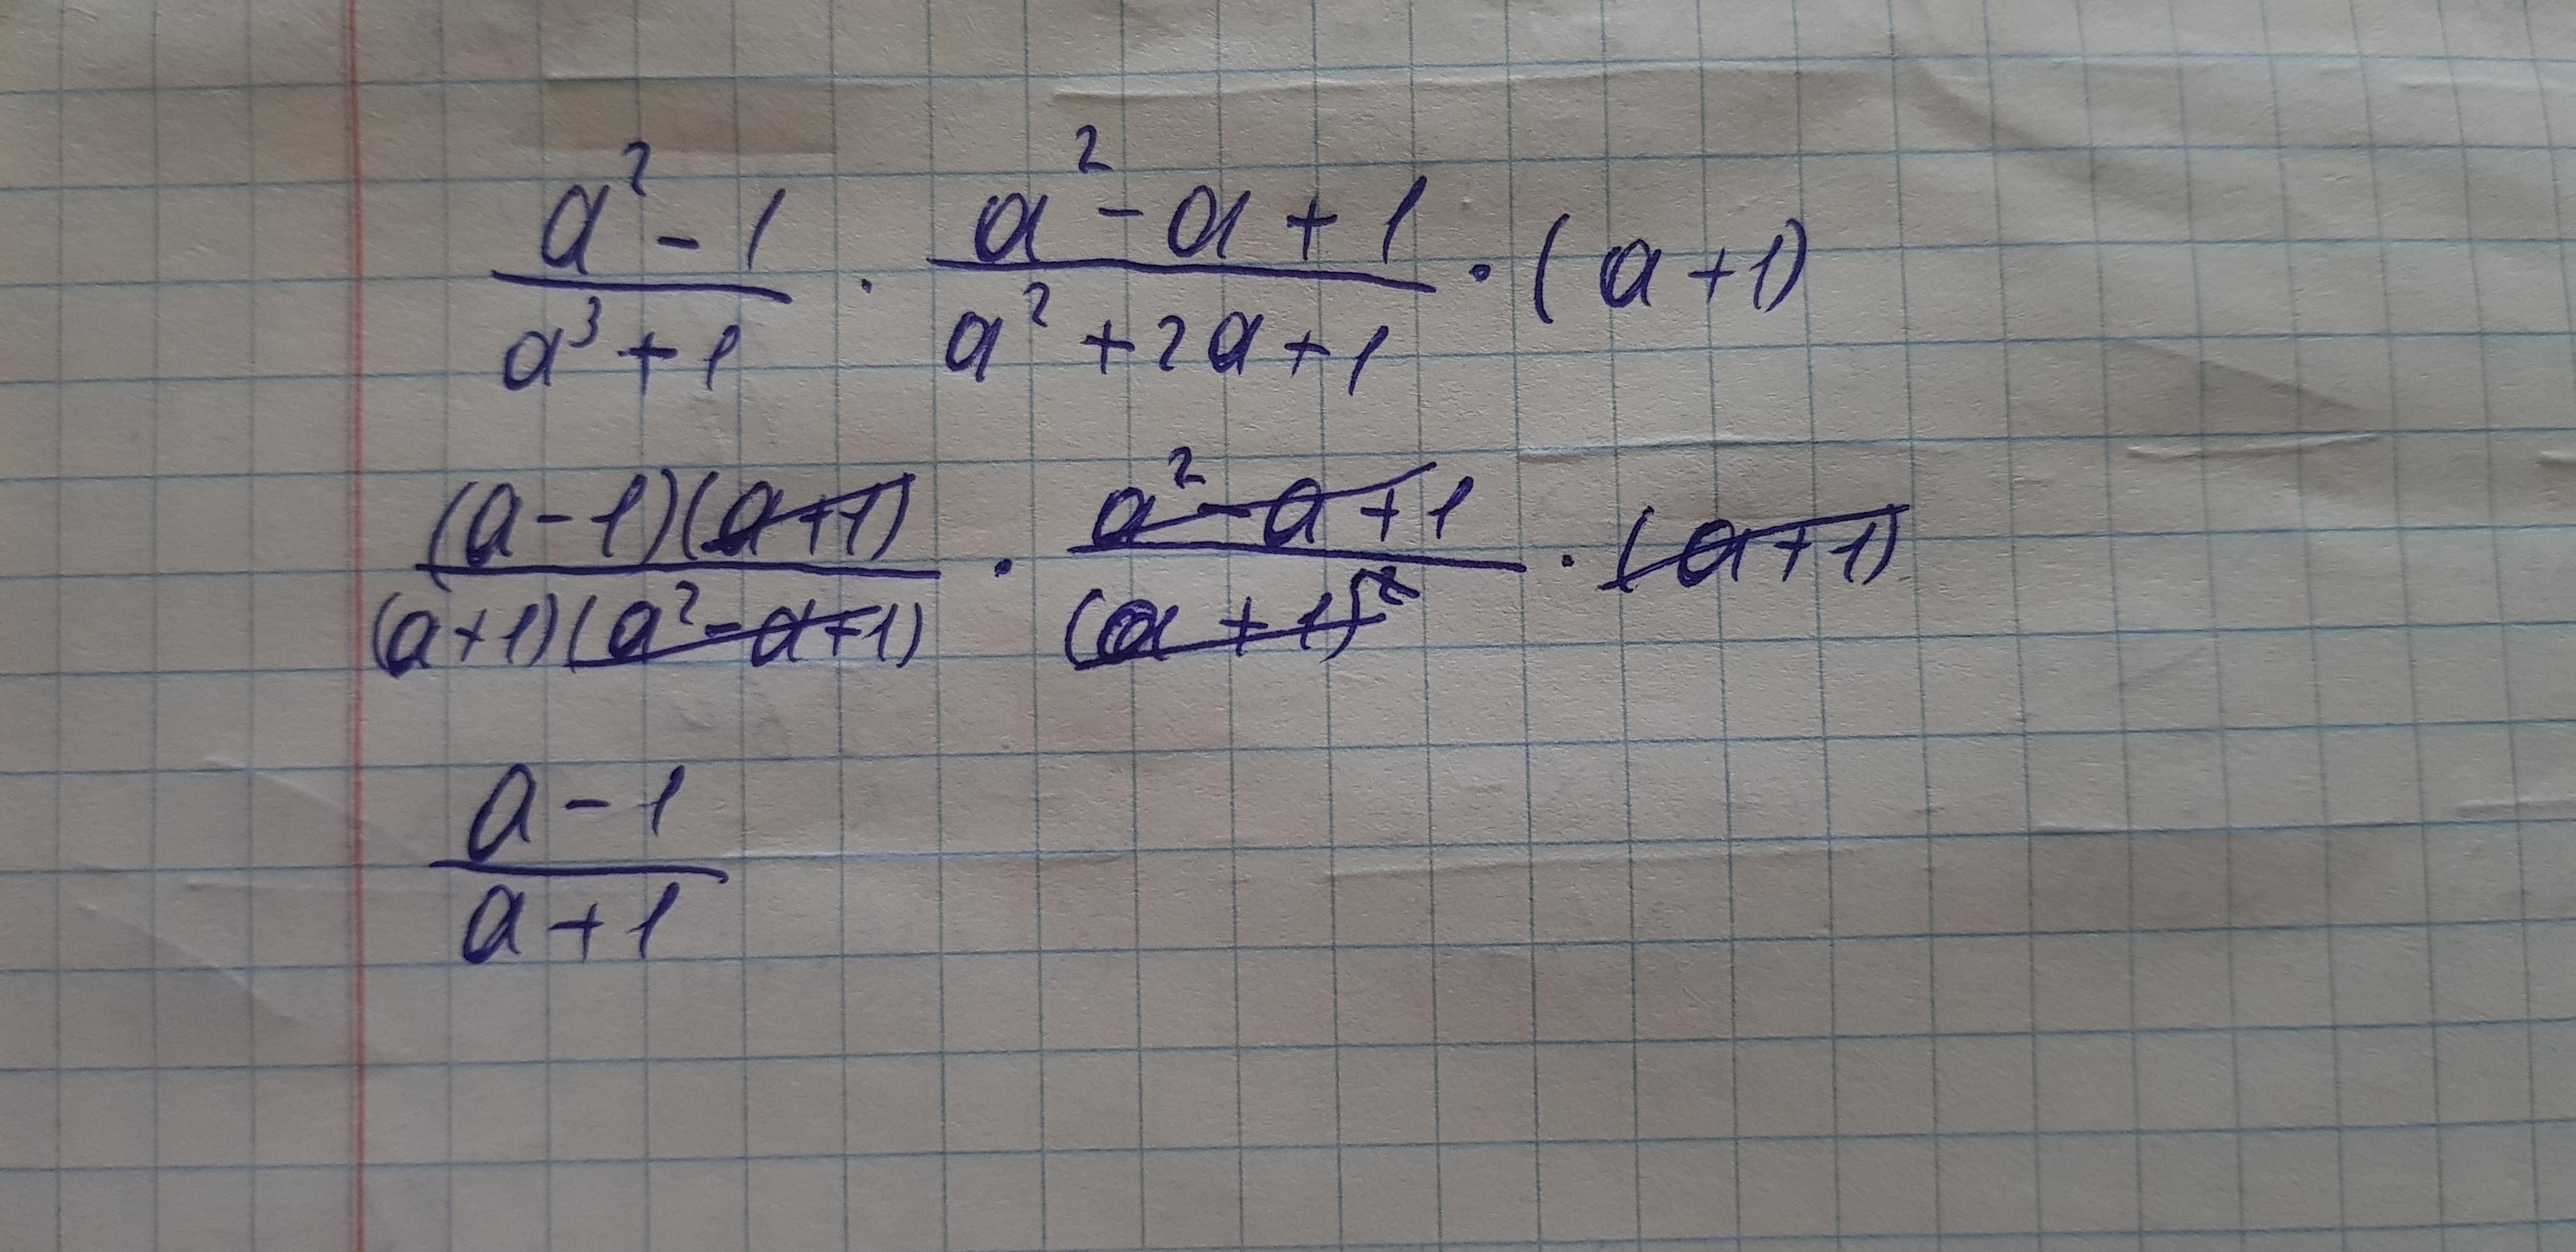 (a² - 1)/(a³ + 1) · (a² - a + 1)/(a² + 2a + 1) · (a + 1)
((a - 1)(a + 1))/((a + 1)(a² - a + 1)) · (a² - a + 1)/((a + 1)²) · (a + 1)
(a - 1)/(a + 1)